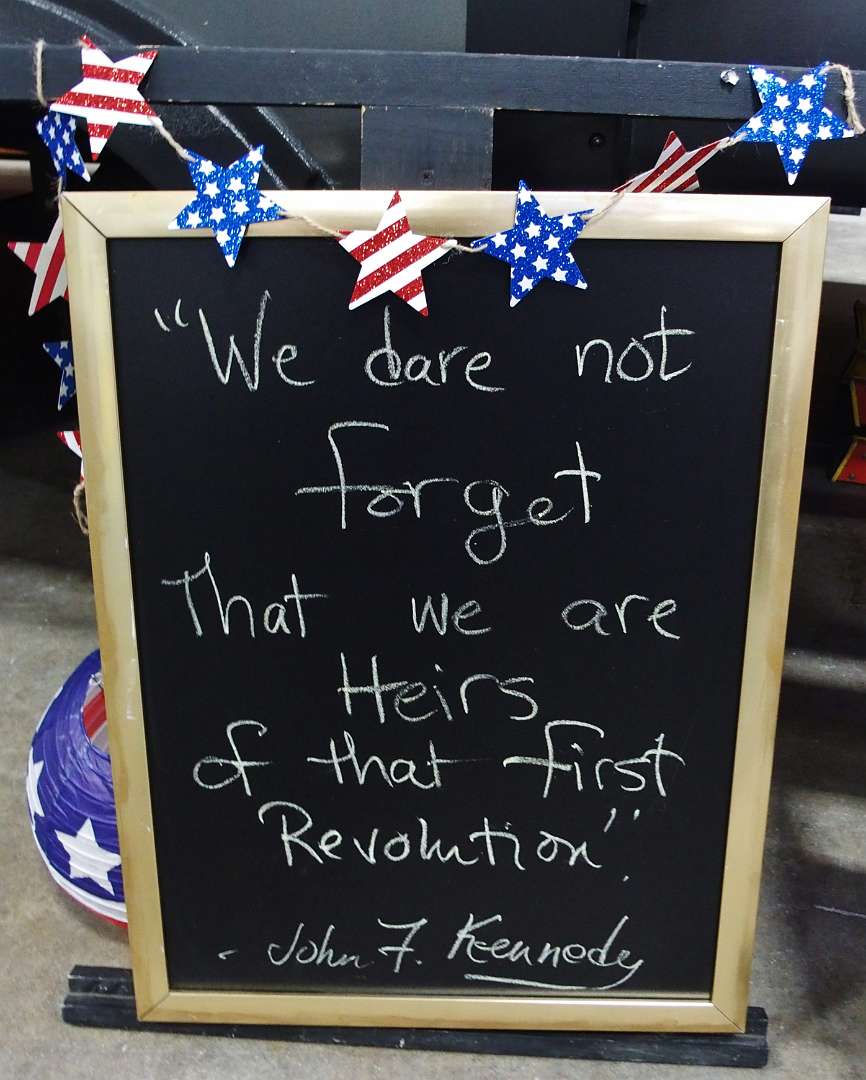 "We dare not
forget
That we are
Heirs
of that first
Revolution".
- John F. Keennedy